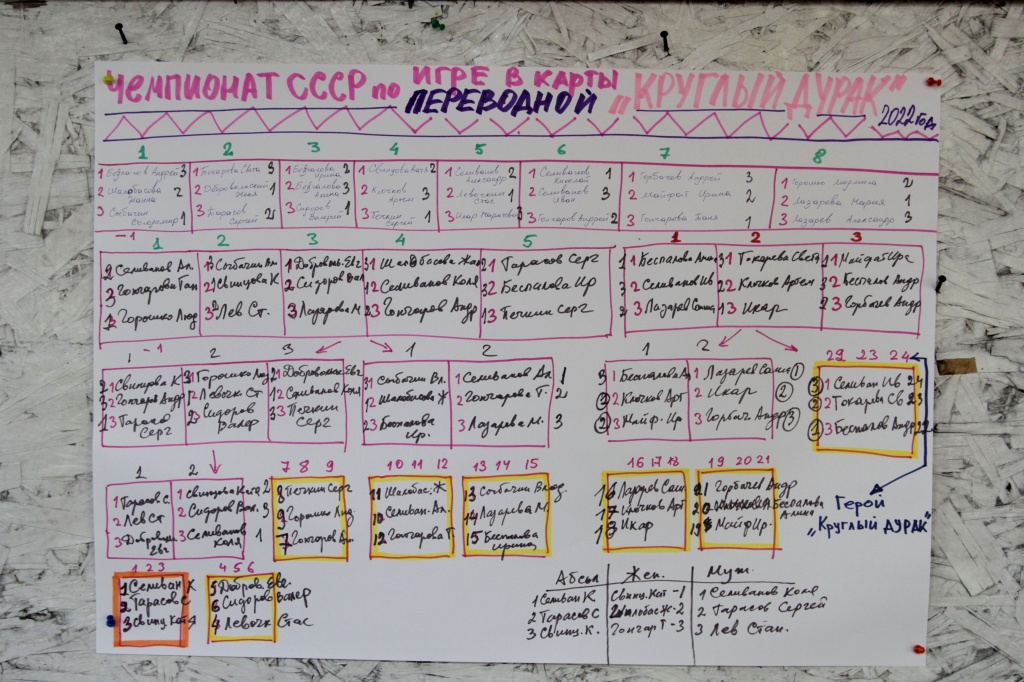 ЧЕМПИОНАТ СССР по ИГРЕ В КАРТЫ
ПЕРЕВОДНОЙ „КРУГЛЫЙ ДУРАК"
2022 год
1 2 3 4 5 6 7 8
1 Беспалов Андрей 3
2 Шалбасова Жанна 2
3 Собачин Владимир 1
1 Токарева Света 3
2 Добровольский Женя 1
3 Тарасов Сергей 2
1 Беспалова Ирина 2
2 Беспалова Алина 3
3 Сидоров Валерий 1
1 Свинцова Катя 2
2 Клочков Артем 3
3 Печкин Сергей 1
1 Селиванов Александр 2
2 Левочкин Стас 1
3 Икар 3
1 Селиванов Николай 1
2 Селиванов Иван 3
3 Гончаров Андрей 2
1 Горбачев Андрей 3
2 Майфат Ирина 2
3 Гончарова Таня 1
1 Горошко Людмила 2
2 Лазарева Мария 1
3 Лазарев Александр 3
-1 1 2 3 4 5 1 2 3
Селиванов Ал.
Гончарова Тан
Горошко Люд
Собачин Вл.
Свинцова К
Лев Ст.
Добровольс. Евг
Сидоров Вал
Лазарева М.
Шалбосова Жан
Селиванов Коля
Гончаров Андр
Тарасов Серг
Беспалова Ир
Печкин Серг
Беспалова Алина
Селиванов Ив
Лазарев Саша
Токарева Света
Клочков Артем
Икар
Майфат Ира
Беспалов Анд
Горбачев Андр
1 -1 2 3 1 2 1 2 29 23 24
Свинцова К
Гончаров Андр
Тарасов Серг
Горошко Люд
Левочк Ст
Сидоров Валер
Добровольск Евг.
Селиванов Коля
Печкин Серг
Собачин Вл.
Шалбасова Ж
Беспалова Ир.
1 Селиванов Ал 1
2 Гончарова Т. 2
3 Лазарева М. 3
1 Беспалова А
2 Клочков Арт
3 Майф. Ир
1 Лазарев Саша 1
2 Икар 2
3 Горбач Андр 3
3 1 Селиван Ив 24
2 2 Токарев Св 23
1 3 Беспалов Андр 22
1 2 7 8 9 10 11 12 13 14 15 16 17 18 19 20 21
1 Тарасов С.
2 Лев Ст
3 Добровольс Евг
1 Свинцова Катя 2
2 Сидоров Вал. 3
3 Селиванов Коля 1
8 Печкин Серг
9 Горошко Люд.
7 Гончаров Ан
11 Шалбас. Ж
10 Селиван. Ал.
12 Гончарова Т.
13 Собачин Влад.
14 Лазарева М.
15 Беспалова Ирина
16 Лазарев Саш
17 Клочков Арт
18 Икар
21 Горбачев Андр
20 Беспалова Алина
19 Майф Ир.
Герой
"Круглый ДУРАК"
1 2 3 4 5 6
1 Селиван К
2 Тарасов С
3 Свинц Катя
5 Доброва Евг.
6 Сидоров Валер
4 Левочк Стас
Абсол Жен. Муж.
1 Селиван К Свинц. Кат -1 1 Селиванов Коля
2 Тарасов С Шалбас Ж -2 2 Тарасов Сергей
3 Свинц. К. Гончар Т -3 3 Лев Стан.